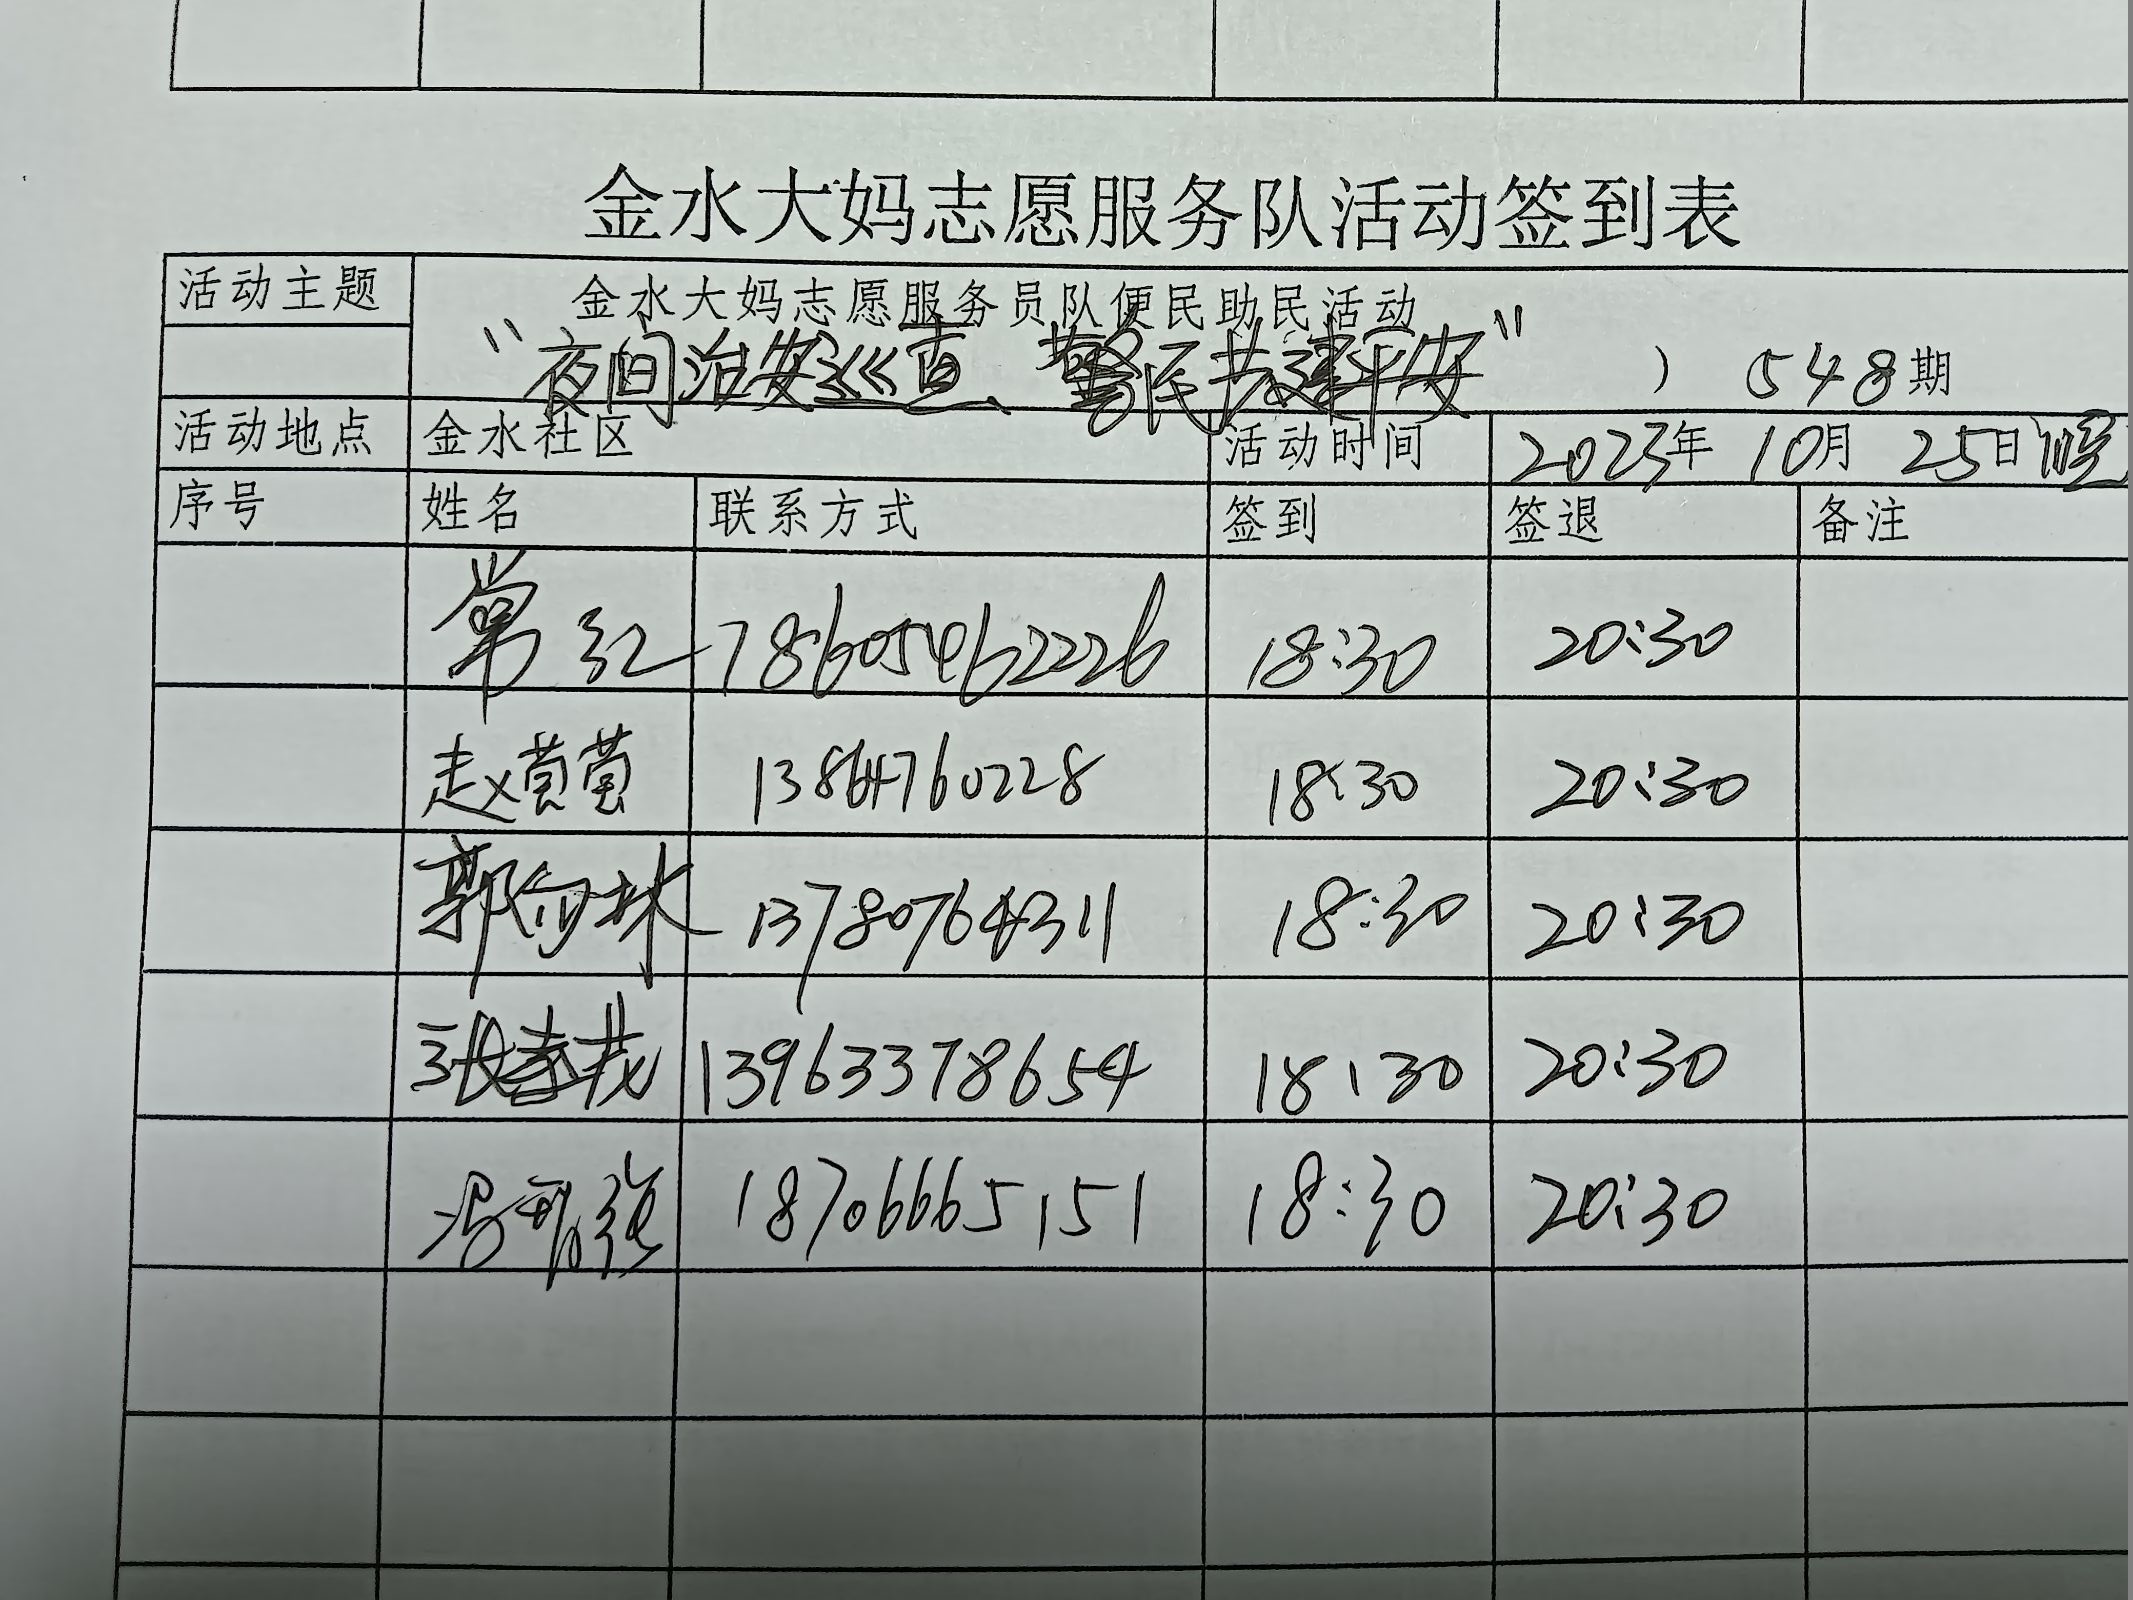 金水大妈志愿服务队活动签到表
活动主题 金水大妈志愿服务员队便民助民活动
"夜间治安巡查、警民共建平安" ) 548期
活动地点 金水社区 活动时间 2023年 10月 25日 晚
序号 姓名 联系方式 签到 签退 备注
常红 18605462226 18:30 20:30
赵萱萱 13864760228 18:30 20:30
郭向林 13780764311 18:30 20:30
张 13963378654 18:30 20:30
冯 强 18706665151 18:30 20:30